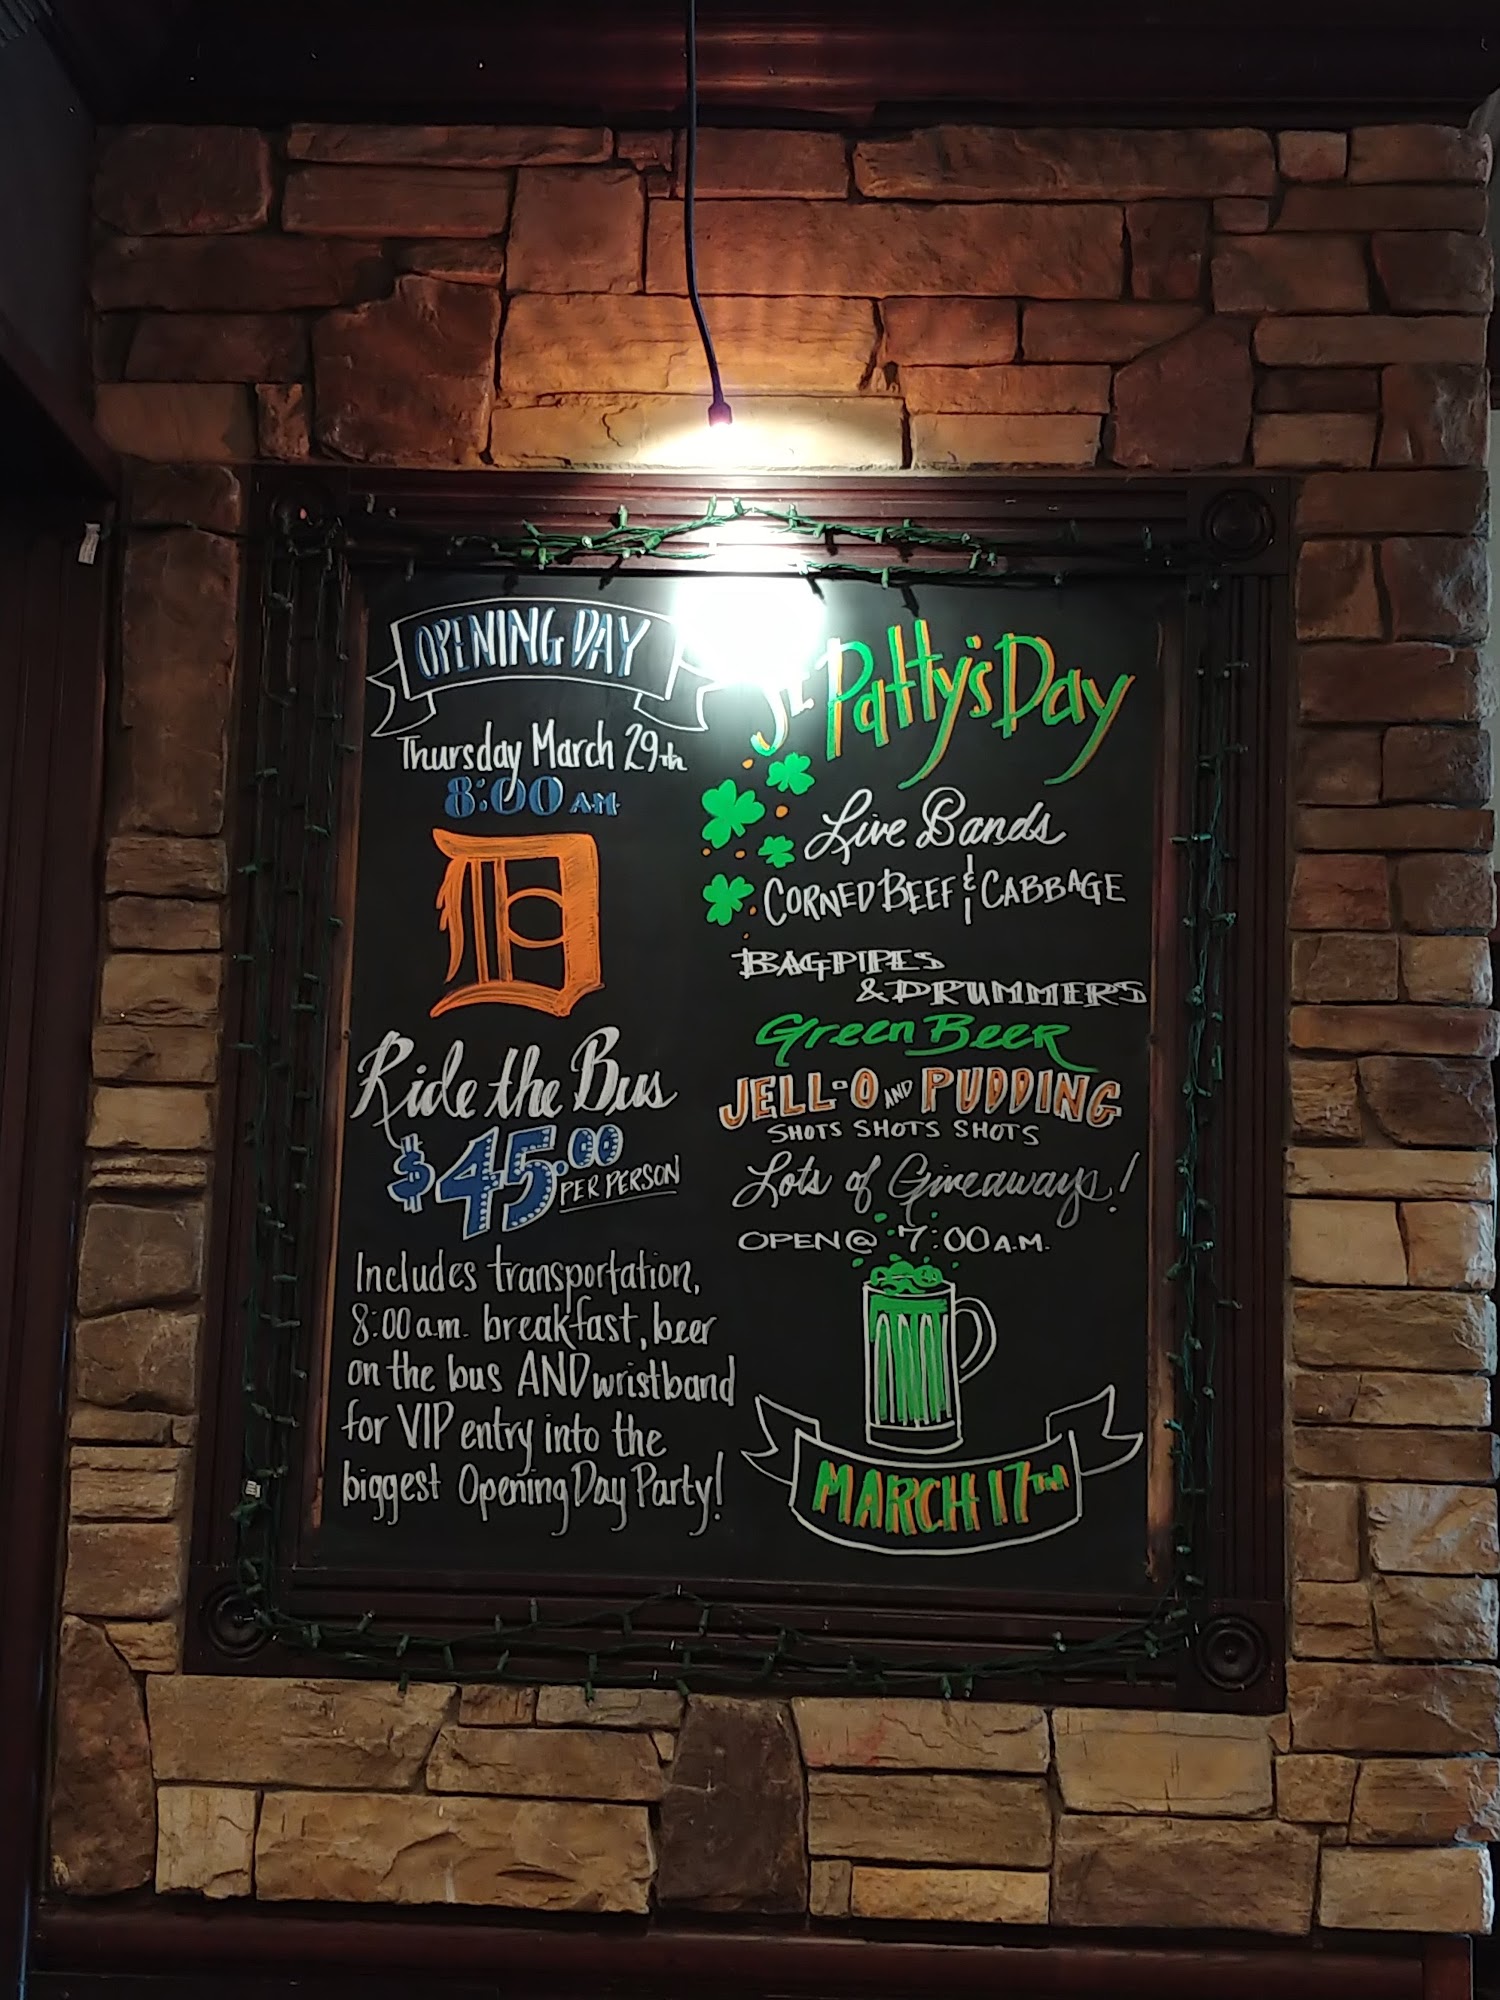 OPENING DAY
Thursday March 29th
8:00 AM
D
Ride the Bus
$45.00
PER PERSON
Includes transportation,
8:00 a.m. breakfast, beer
on the bus AND wristband
for VIP entry into the
biggest Opening Day Party!
St. Patty's Day
Live Bands
CORNED BEEF & CABBAGE
BAGPIPES
& DRUMMERS
Green Beer
JELL-O AND PUDDING
SHOTS SHOTS SHOTS
Lots of Giveaways!
OPEN @ 7:00 A.M.
MARCH 17TH